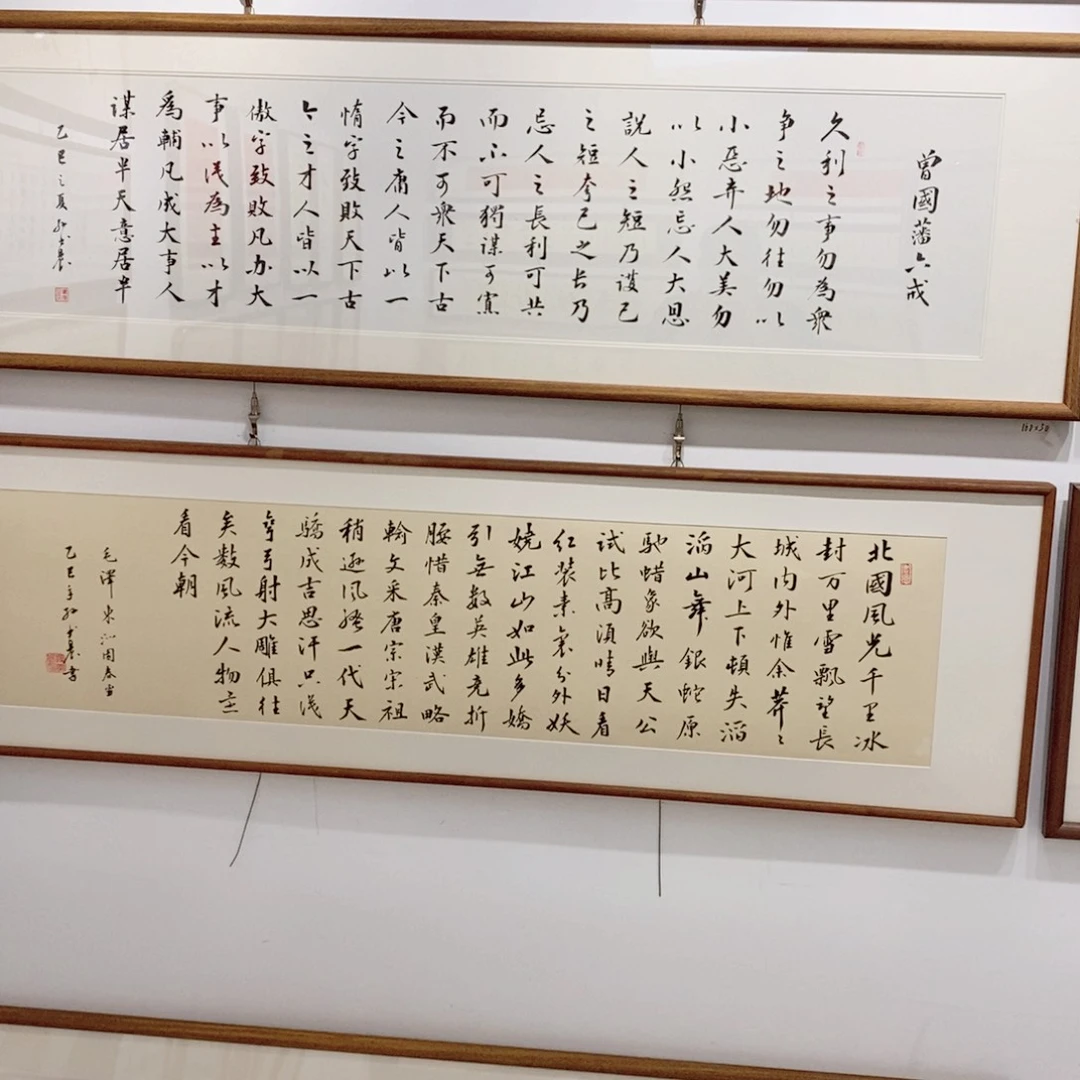 曾國藩六戒
久利之事勿為衆
争之地勿往勿以
小惡弃人大美勿
以小怨忘人大恩
説人之短乃護己
之短夸己之长乃
忌人之長利可共
而不可獨謀可寡
而不可衆天下古
今之庸人皆以一
惰字致敗天下古
今之才人皆以一
傲字致敗凡办大
事以识為主以才
爲輔凡成大事人
謀居半天意居半
乙巳之夏
北國風光千里冰
封万里雪飄望長
城内外惟余莽々
大河上下頓失滔
滔山舞銀蛇原
馳蜡象欲與天公
試比高須晴日看
红装素裹分外妖
娆江山如此多嬌
引無數英雄竞折
腰惜秦皇漢武略
輸文采唐宗宋祖
稍逊风骚一代天
驕成吉思汗只识
弯弓射大雕俱往
矣数風流人物还
看今朝
毛澤東沁园春雪
乙巳年